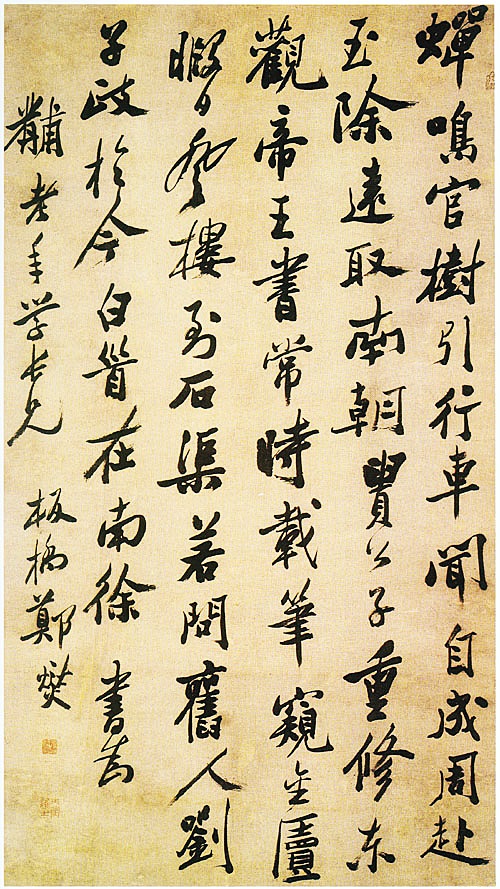 蟬鳴官樹引行車聞自成周赴
玉除遠取南朝貴公子重修東
觀帝王書常時載筆窺金匱
暇日登樓到石渠若問舊人劉
子政於今白首在南徐 書
黼老年學長兄 板橋鄭燮